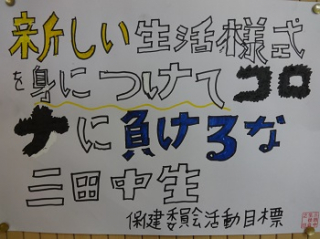 新しい生活様式
を身につけてコロ
ナに負けるな
三田中生
保健委員会活動目標